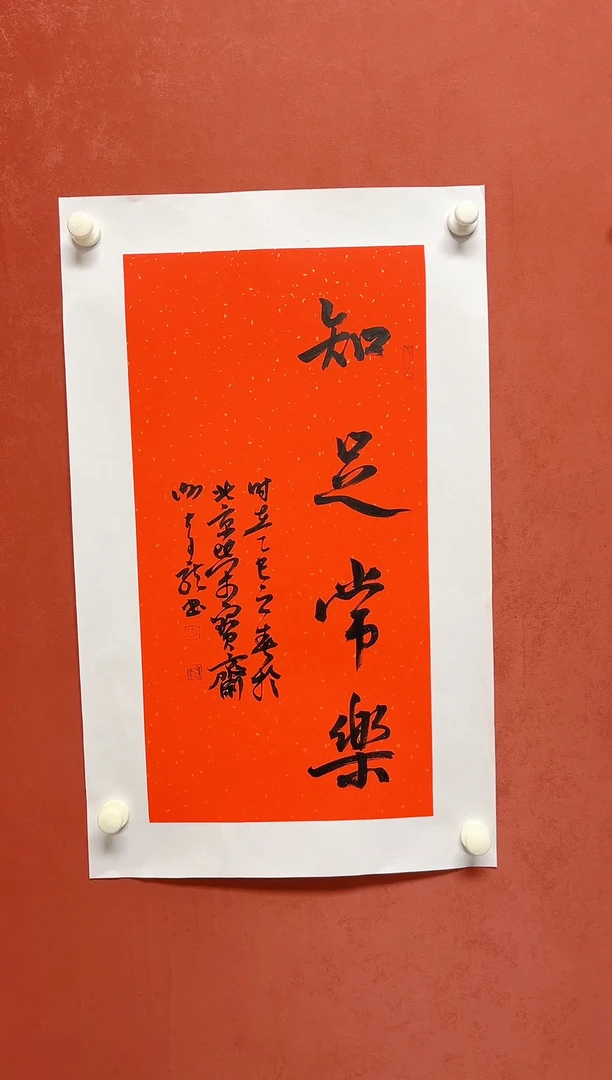 知足常樂
时在乙巳之春于
北京荣宝齋
书